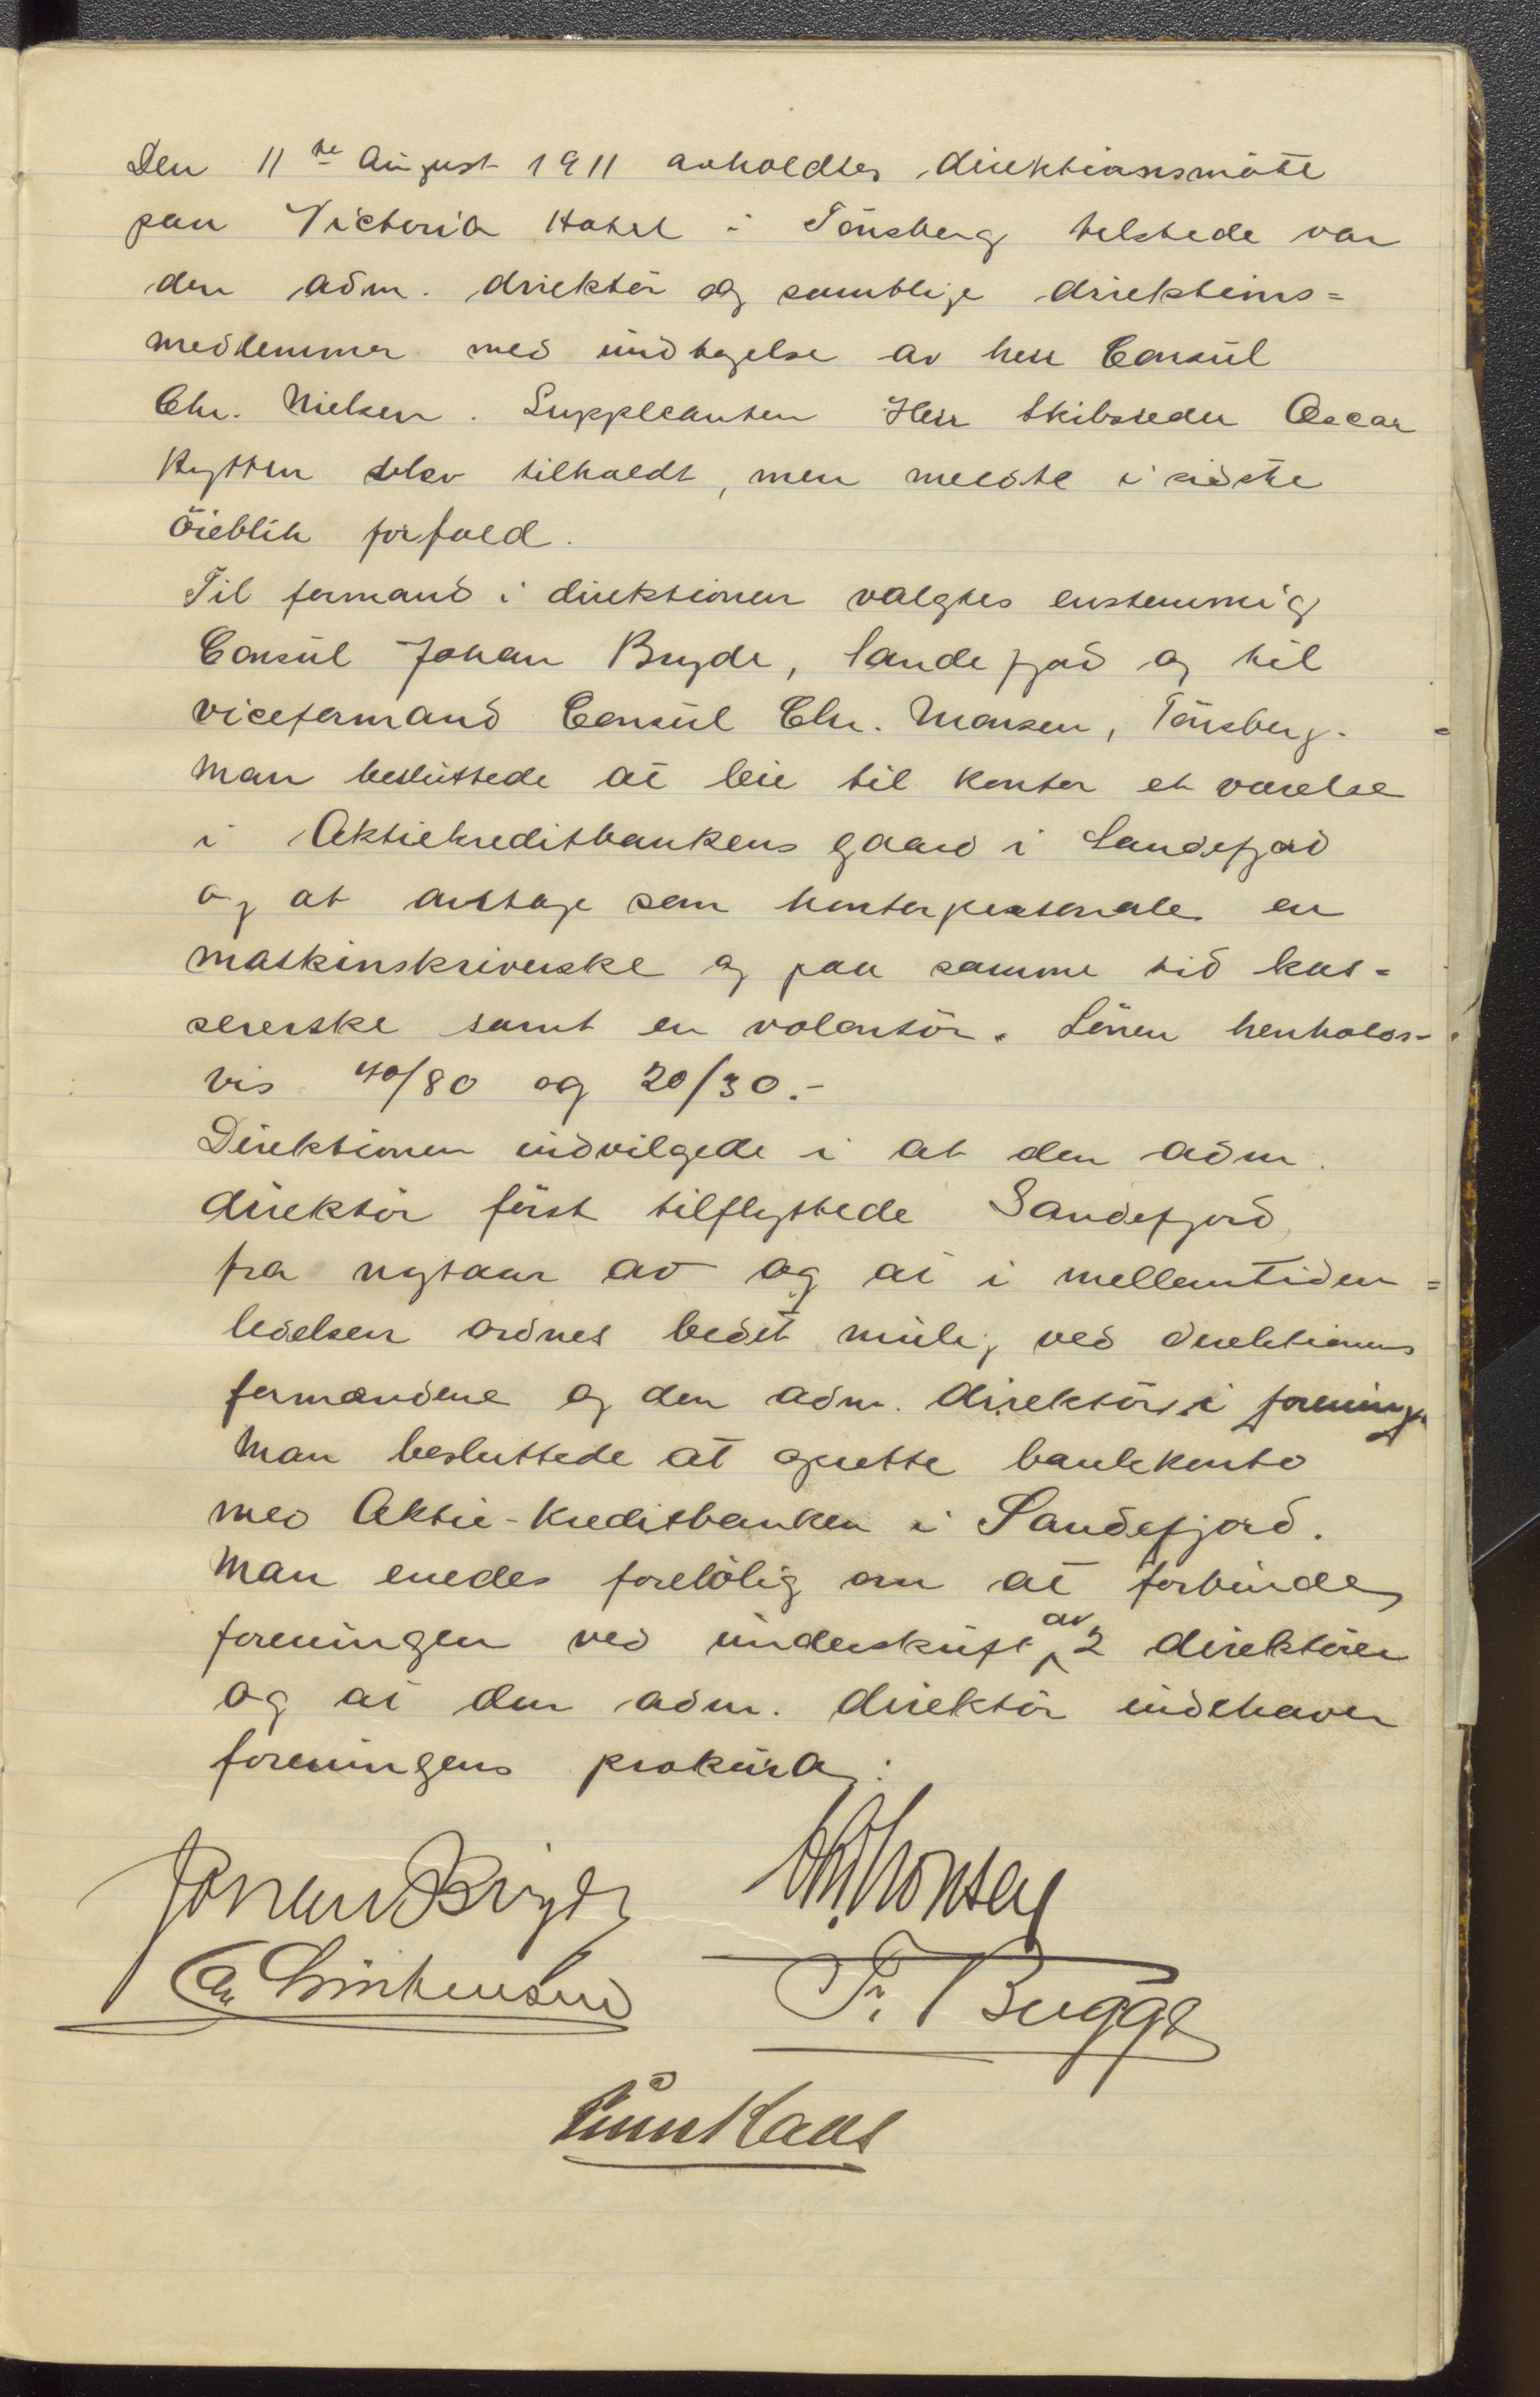 Den 11te August 1911 avholdtes direktionsmöte
paa Victoria Hotel i Tönsberg telstede var
den adm. direktör og samtlige direktions=
medlemmer med undtagelse av herr Consul
Chr. Nielsen. Suppleanten Herr Skibsreder Oscar
Rytter blev tilkaldt, men meldte i sidste
öieblik forfald.
Til formand i direktionen valgtes enstemmig
Consul Johan Bryde, Sandefjord og til
viceformand Consul Chr. Monsen, Tönsberg.
Man besluttede at leie til kontor et værelse
i Aktiekreditbankens gaard i Sandefjord
og at anttage som kontorpersonale en
maskinskriverske og paa samme tid kas=
sererske samt en volontör. Lönen henholds-
vis 40/80 og 20/30.-
Direktionen indvilgede i at den adm.
direktör först tilflyttede Sandefjord
fra nytaar av og at i mellemtiden
ledelsen ordnes bedst mulig ved direktionens
formændene og den adm. direktör i forening.
Man besluttede at oprette bankkonto
med Aktie-Kreditbanken i Sandefjord.
Man enedes forelölig om at forbinde
foreningen ved underskrift av 2 direktörer
og at den adm. direktör indehaver
foreningens prokura.
Johan Bryde Chr Monsen
Chr Christensen Fr. Bugge